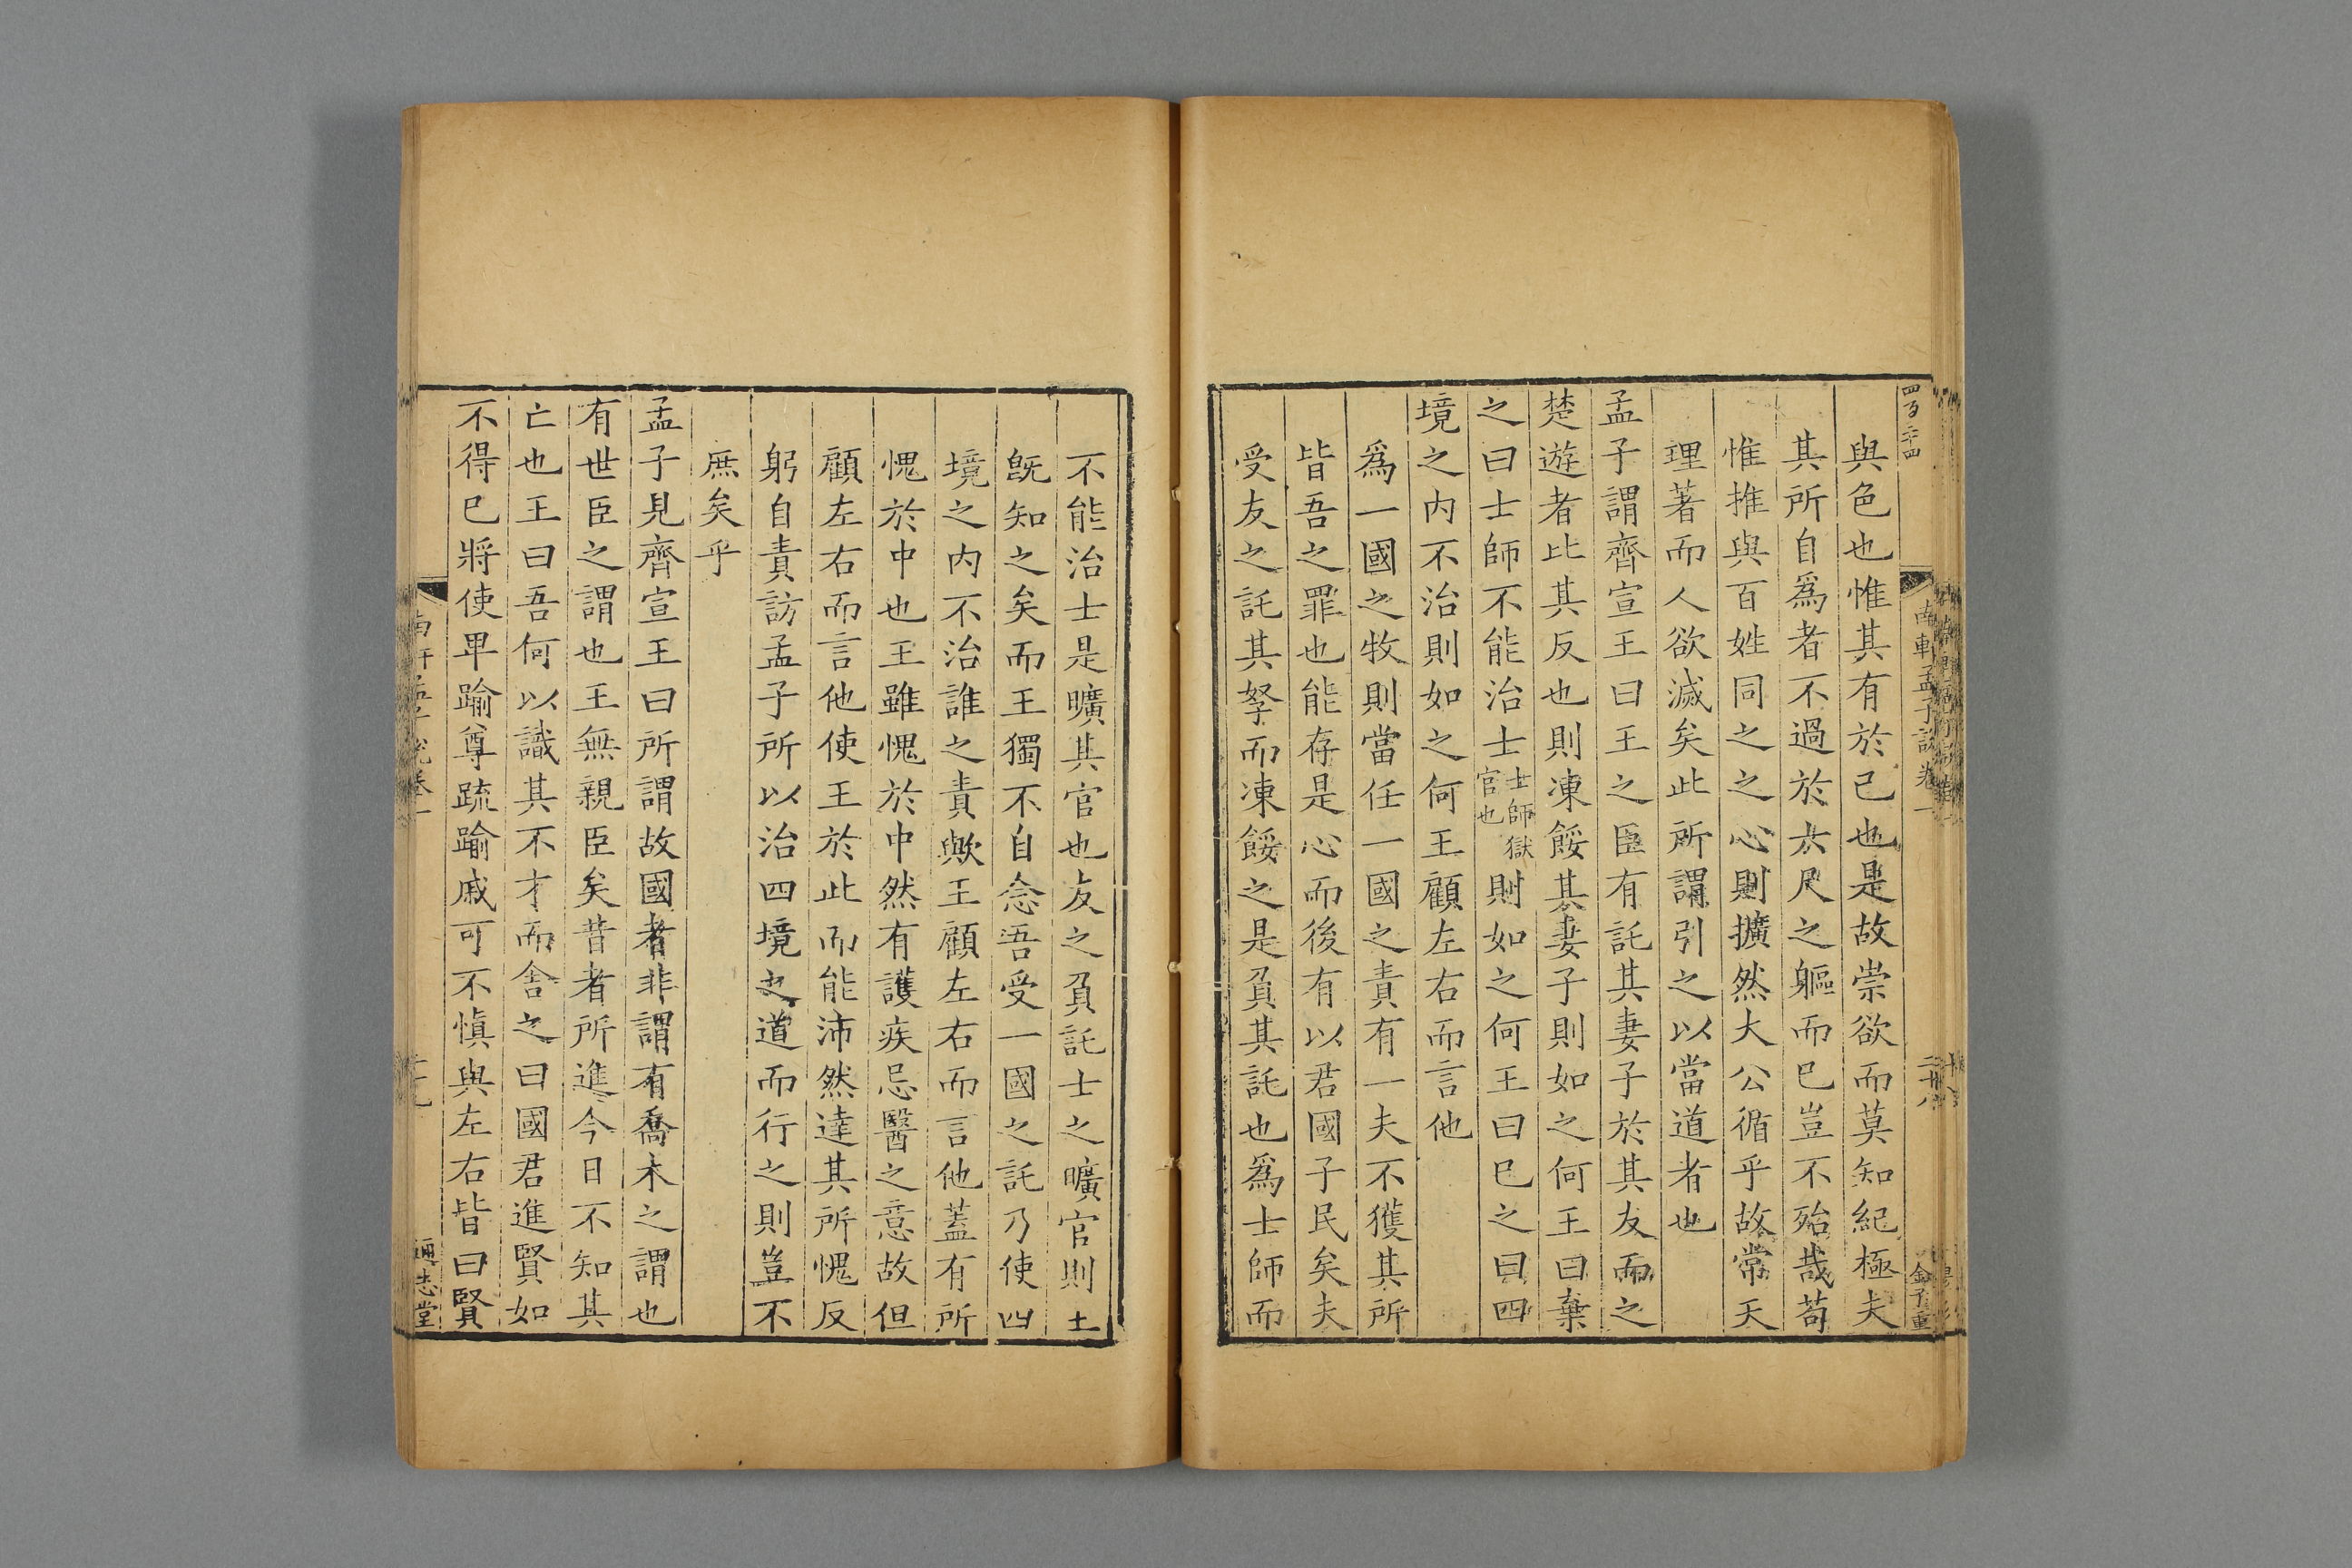 與色也惟其有於己也是故崇欲而莫知紀極夫
其所自爲者不過於六尺之軀而已豈不殆哉苟
惟推與百姓同之之心則擴然大公循乎故常天
理著而人欲滅矣此所謂引之以當道者也
孟子謂齊宣王曰王之臣有託其妻子於其友而之
楚遊者比其反也則凍餒其妻子則如之何王曰棄
之曰士師不能治士士師獄官也則如之何王曰已之曰四
境之內不治則如之何王顧左右而言他
爲一國之牧則當任一國之責有一夫不獲其所
皆吾之罪也能存是心而後有以君國子民矣夫
受友之託其孥而凍餒之是負其託也爲士師而
不能治士是曠其官也友之負託士之曠官則士
旣知之矣而王獨不自念吾受一國之託乃使四
境之內不治誰之責歟王顧左右而言他蓋有所
愧於中也王雖愧於中然有護疾忌醫之意故但
顧左右而言他使王於此而能沛然達其所愧反
躬自責訪孟子所以治四境之道而行之則豈不
庶矣乎
孟子見齊宣王曰所謂故國者非謂有喬木之謂也
有世臣之謂也王無親臣矣昔者所進今日不知其
亡也王曰吾何以識其不才而舍之曰國君進賢如
不得已將使卑踰尊疏踰戚可不愼與左右皆曰賢
南軒孟子說卷一
二十八
金子重
通志堂